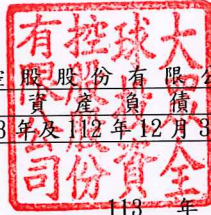 控股股份有限公
資產負債
3年及112年12月3
113 年
大眾全
球投資
控股股份
有限公司